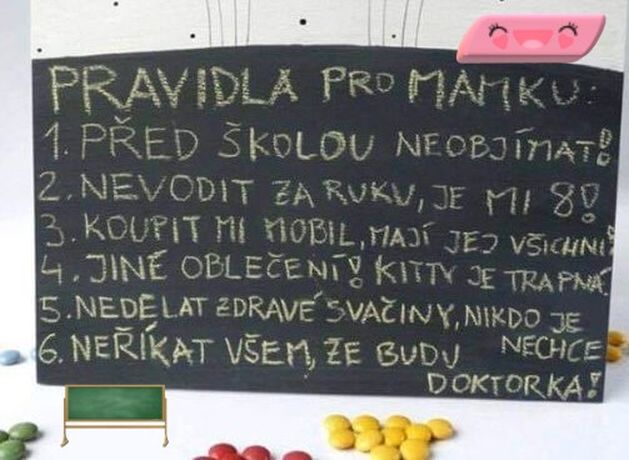 PRAVIDLA PRO MAMKU:
1. PŘED ŠKOLOU NEOBJÍMAT!
2. NEVODIT ZA RUKU, JE MI 8!
3. KOUPIT MI MOBIL, MAJÍ JEJ VŠICHNI!
4. JINÉ OBLEČENÍ! KITTY JE TRAPNÁ
5. NEDĚLAT ZDRAVÉ SVAČINY, NIKDO JE
NECHCE
6. NEŘÍKAT VŠEM, ŽE BUDU
DOKTORKA!